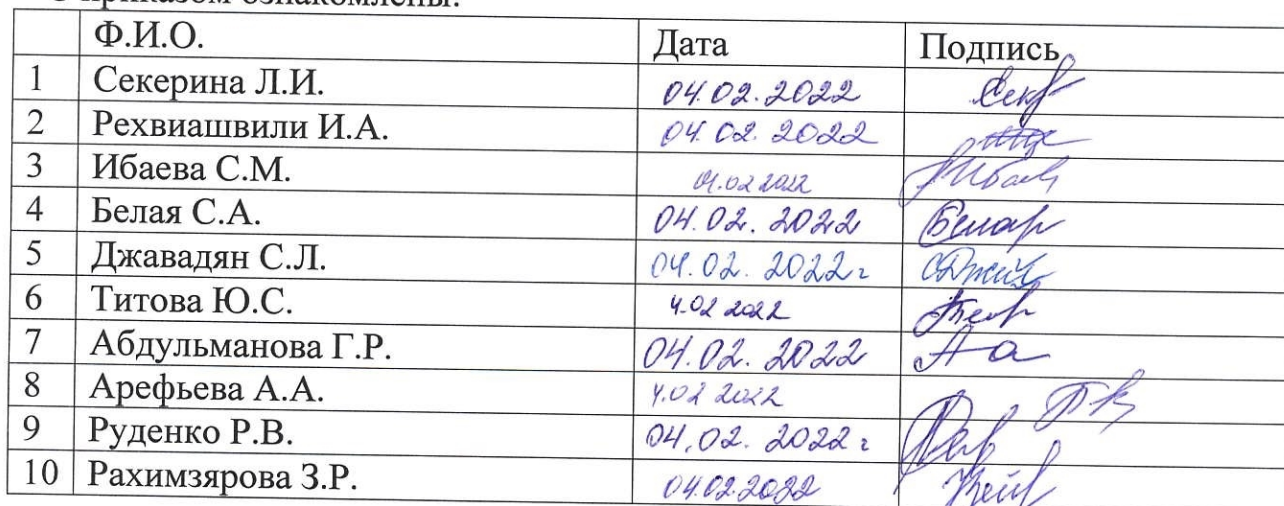 приказом ознакомлены:
Ф.И.О. Дата Подпись
1 Секерина Л.И. 04.02.2022
2 Рехвиашвили И.А. 04.02.2022
3 Ибаева С.М. 04.02 2022
4 Белая С.А. 04.02.2022
5 Джавадян С.Л. 04.02.2022г
6 Титова Ю.С. 4.02 2022
7 Абдульманова Г.Р. 04.02.2022
8 Арефьева А.А. 4.02 2022
9 Руденко Р.В. 04.02.2022г
10 Рахимзярова З.Р. 04.02.2022